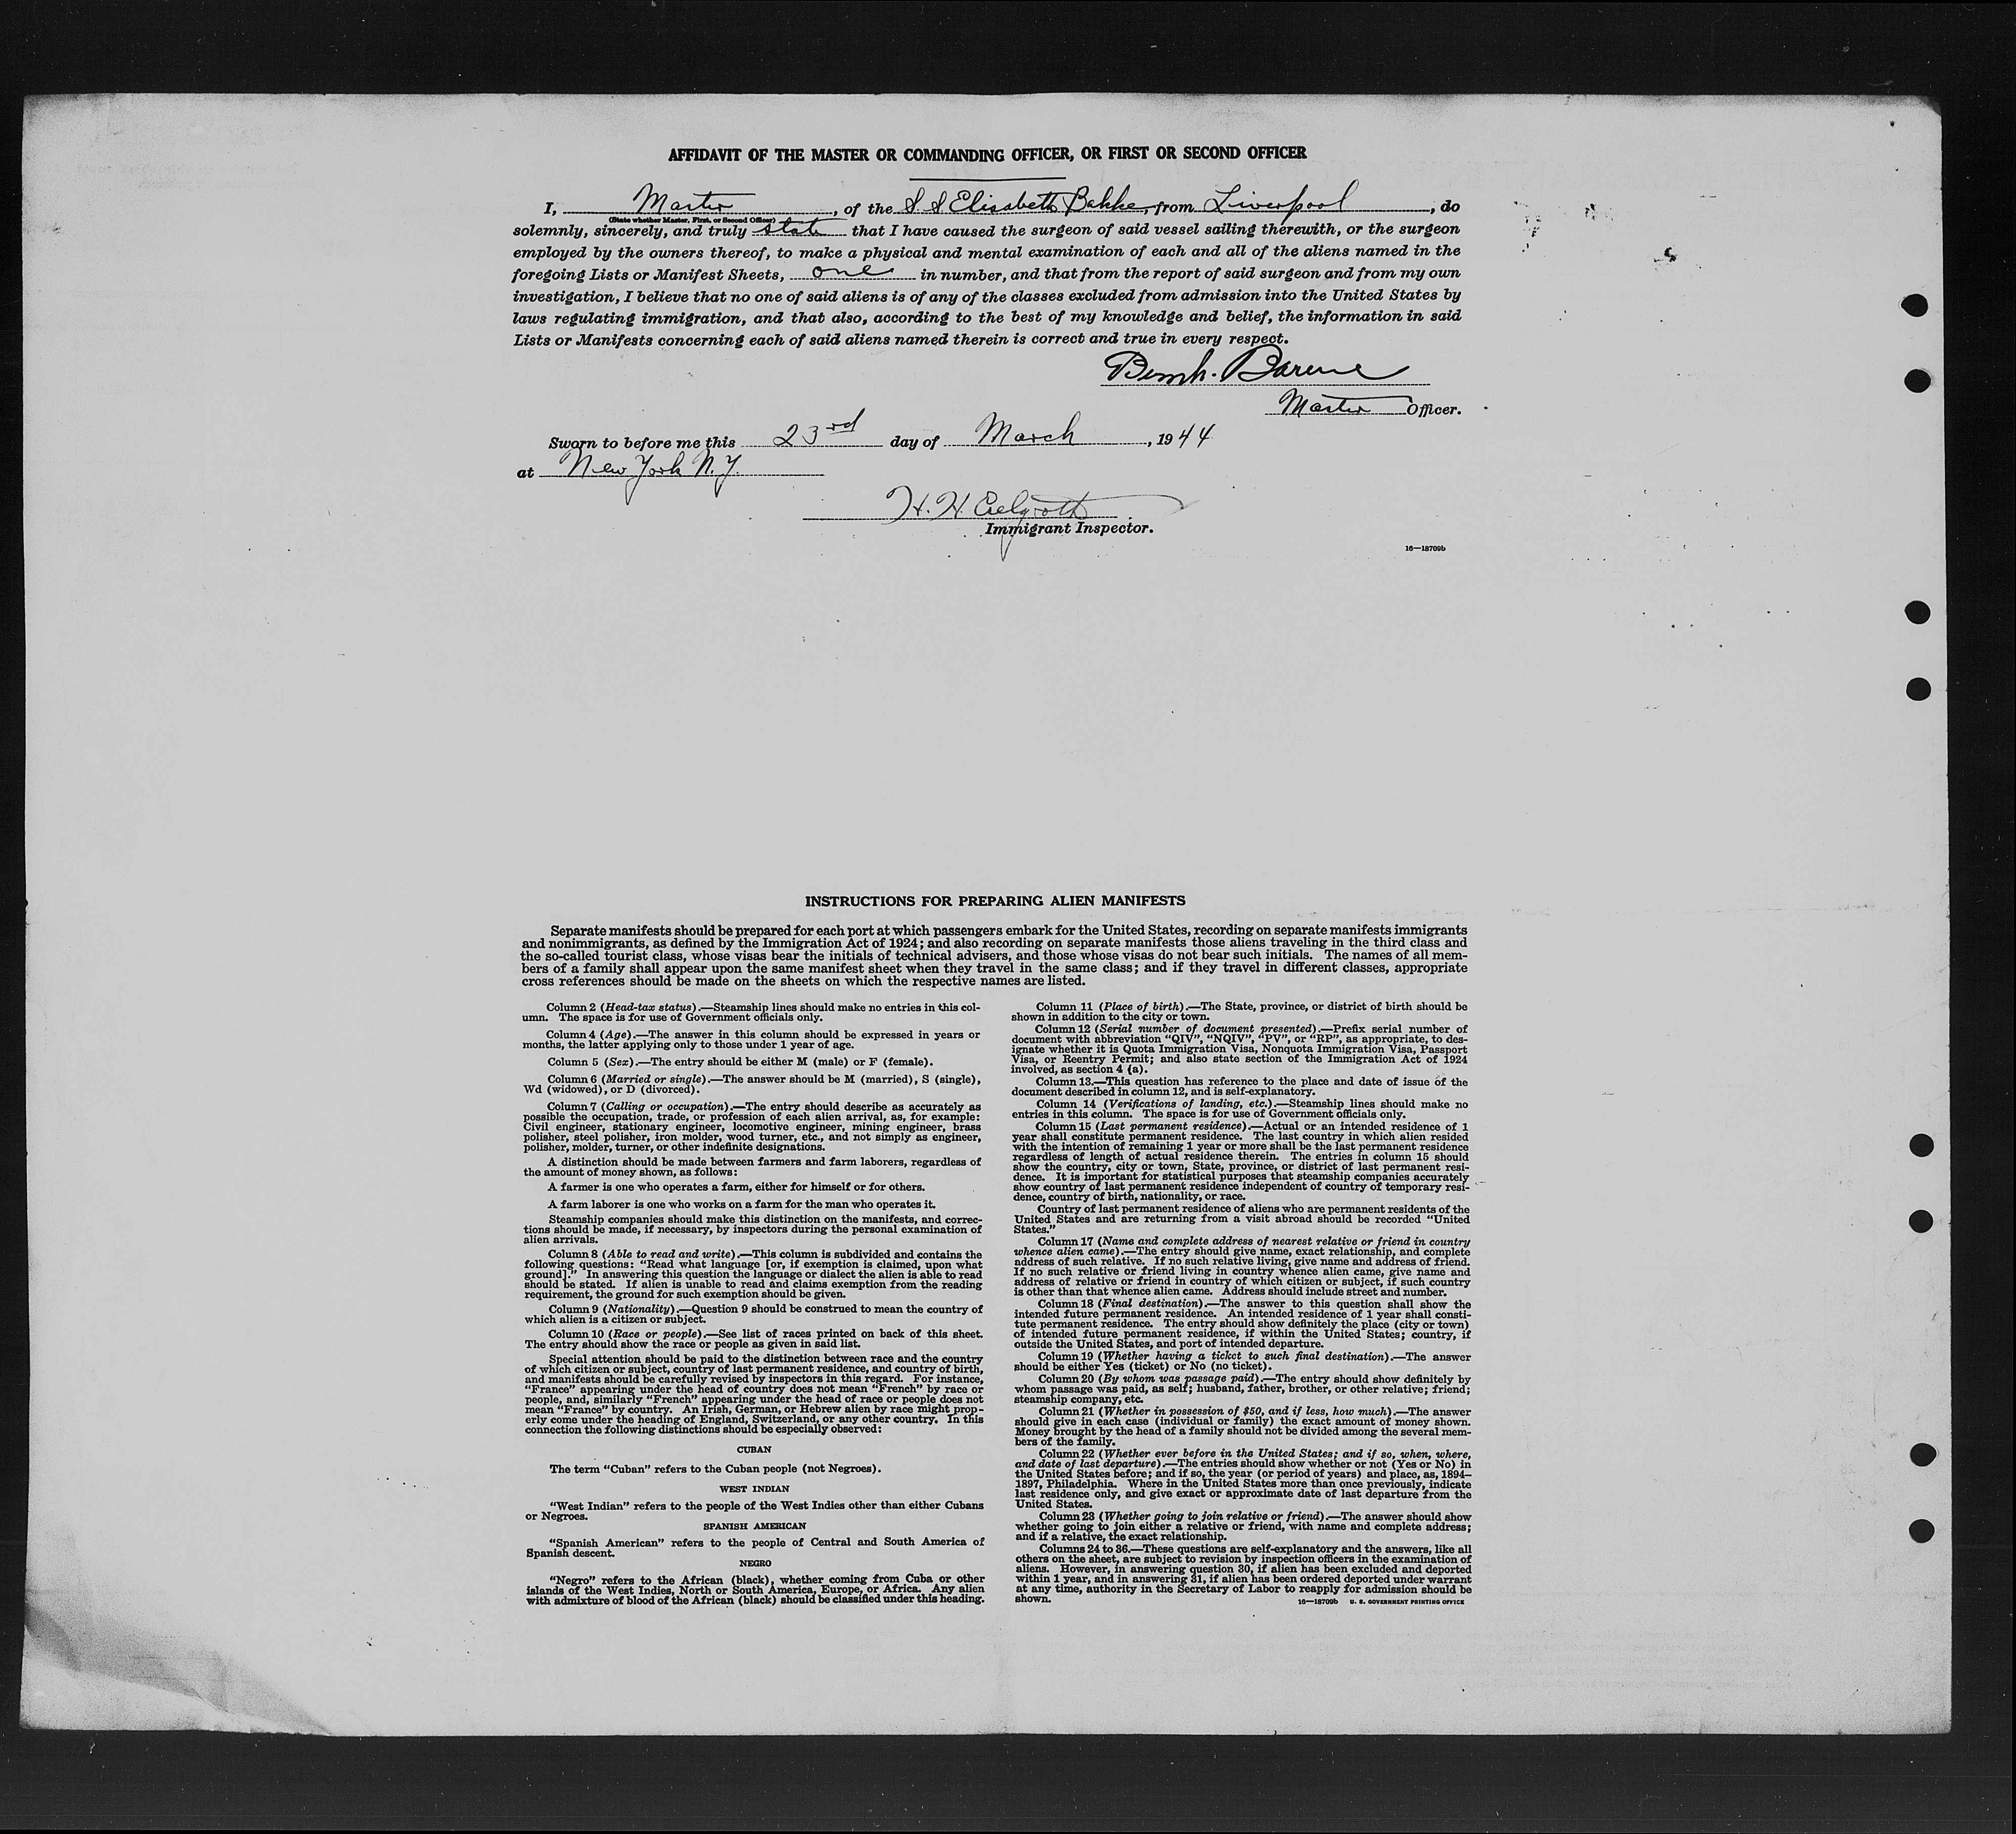 AFFIDAVIT OF THE MASTER OR COMMANDING OFFICER, OR FIRST OR SECOND OFFICER
I, Master, of the S. S Elisabeth Bakke, from Liverpool, do
(State whether Master, First, or Second Officer)
solemnly, sincerely, and truly state that I have caused the surgeon of said vessel sailing therewith, or the surgeon
employed by the owners thereof, to make a physical and mental examination of each and all of the aliens named in the
foregoing Lists or Manifest Sheets, one in number, and that from the report of said surgeon and from my own
investigation, I believe that no one of said aliens is of any of the classes excluded from admission into the United States by
laws regulating immigration, and that also, according to the best of my knowledge and belief, the information in said
Lists or Manifests concerning each of said aliens named therein is correct and true in every respect.
Bernh.
Master Officer.
Sworn to before me this 23rd day of March, 1944
at New York N.Y.
H. H.
Immigrant Inspector.
16—18709b
INSTRUCTIONS FOR PREPARING ALIEN MANIFESTS
Separate manifests should be prepared for each port at which passengers embark for the United States, recording on separate manifests immigrants
and nonimmigrants, as defined by the Immigration Act of 1924; and also recording on separate manifests those aliens traveling in the third class and
the so-called tourist class, whose visas bear the initials of technical advisers, and those whose visas do not bear such initials. The names of all mem-
bers of a family shall appear upon the same manifest sheet when they travel in the same class; and if they travel in different classes, appropriate
cross references should be made on the sheets on which the respective names are listed.
Column 2 (Head-tax status).—Steamship lines should make no entries in this col-
umn. The space is for use of Government officials only.
Column 4 (Age).—The answer in this column should be expressed in years or
months, the latter applying only to those under 1 year of age.
Column 5 (Sex).—The entry should be either M (male) or F (female).
Column 6 (Married or single).—The answer should be M (married), S (single),
Wd (widowed), or D (divorced).
Column 7 (Calling or occupation).—The entry should describe as accurately as
possible the occupation, trade, or profession of each alien arrival, as, for example:
Civil engineer, stationary engineer, locomotive engineer, mining engineer, brass
polisher, steel polisher, iron molder, wood turner, etc., and not simply as engineer,
polisher, molder, turner, or other indefinite designations.
A distinction should be made between farmers and farm laborers, regardless of
the amount of money shown, as follows:
A farmer is one who operates a farm, either for himself or for others.
A farm laborer is one who works on a farm for the man who operates it.
Steamship companies should make this distinction on the manifests, and correc-
tions should be made, if necessary, by inspectors during the personal examination of
alien arrivals.
Column 8 (Able to read and write).—This column is subdivided and contains the
following questions: "Read what language [or, if exemption is claimed, upon what
ground]." In answering this question the language or dialect the alien is able to read
should be stated. If alien is unable to read and claims exemption from the reading
requirement, the ground for such exemption should be given.
Column 9 (Nationality).—Question 9 should be construed to mean the country of
which alien is a citizen or subject.
Column 10 (Race or people).—See list of races printed on back of this sheet.
The entry should show the race or people as given in said list.
Special attention should be paid to the distinction between race and the country
of which citizen or subject, country of last permanent residence, and country of birth,
and manifests should be carefully revised by inspectors in this regard. For instance,
"France" appearing under the head of country does not mean "French" by race or
people, and, similarly "French" appearing under the head of race or people does not
mean "France" by country. An Irish, German, or Hebrew alien by race might prop-
erly come under the heading of England, Switzerland, or any other country. In this
connection the following distinctions should be especially observed:
CUBAN
The term "Cuban" refers to the Cuban people (not Negroes).
WEST INDIAN
"West Indian" refers to the people of the West Indies other than either Cubans
or Negroes.
SPANISH AMERICAN
"Spanish American" refers to the people of Central and South America of
Spanish descent.
NEGRO
"Negro" refers to the African (black), whether coming from Cuba or other
islands of the West Indies, North or South America, Europe, or Africa. Any alien
with admixture of blood of the African (black) should be classified under this heading.
Column 11 (Place of birth).—The State, province, or district of birth should be
shown in addition to the city or town.
Column 12 (Serial number of document presented).—Prefix serial number of
document with abbreviation "QIV", "NQIV", "PV", or "RP", as appropriate, to des-
ignate whether it is Quota Immigration Visa, Nonquota Immigration Visa, Passport
Visa, or Reentry Permit; and also state section of the Immigration Act of 1924
involved, as section 4 (a).
Column 13.—This question has reference to the place and date of issue of the
document described in column 12, and is self-explanatory.
Column 14 (Verifications of landing, etc.).—Steamship lines should make no
entries in this column. The space is for use of Government officials only.
Column 15 (Last permanent residence).—Actual or an intended residence of 1
year shall constitute permanent residence. The last country in which alien resided
with the intention of remaining 1 year or more shall be the last permanent residence
regardless of length of actual residence therein. The entries in column 15 should
show the country, city or town, State, province, or district of last permanent resi-
dence. It is important for statistical purposes that steamship companies accurately
show country of last permanent residence independent of country of temporary resi-
dence, country of birth, nationality, or race.
Country of last permanent residence of aliens who are permanent residents of the
United States and are returning from a visit abroad should be recorded "United
States."
Column 17 (Name and complete address of nearest relative or friend in country
whence alien came).—The entry should give name, exact relationship, and complete
address of such relative. If no such relative living, give name and address of friend.
If no such relative or friend living in country whence alien came, give name and
address of relative or friend in country of which citizen or subject, if such country
is other than that whence alien came. Address should include street and number.
Column 18 (Final destination).—The answer to this question shall show the
intended future permanent residence. An intended residence of 1 year shall consti-
tute permanent residence. The entry should show definitely the place (city or town)
of intended future permanent residence, if within the United States; country, if
outside the United States, and port of intended departure.
Column 19 (Whether having a ticket to such final destination).—The answer
should be either Yes (ticket) or No (no ticket).
Column 20 (By whom was passage paid).—The entry should show definitely by
whom passage was paid, as self; husband, father, brother, or other relative; friend;
steamship company, etc.
Column 21 (Whether in possession of $50, and if less, how much).—The answer
should give in each case (individual or family) the exact amount of money shown.
Money brought by the head of a family should not be divided among the several mem-
bers of the family.
Column 22 (Whether ever before in the United States; and if so, when, where,
and date of last departure).—The entries should show whether or not (Yes or No) in
the United States before; and if so, the year (or period of years) and place, as, 1894–
1897, Philadelphia. Where in the United States more than once previously, indicate
last residence only, and give exact or approximate date of last departure from the
United States.
Column 23 (Whether going to join relative or friend).—The answer should show
whether going to join either a relative or friend, with name and complete address;
and if a relative, the exact relationship.
Columns 24 to 36.—These questions are self-explanatory and the answers, like all
others on the sheet, are subject to revision by inspection officers in the examination of
aliens. However, in answering question 30, if alien has been excluded and deported
within 1 year, and in answering 31, if alien has been ordered deported under warrant
at any time, authority in the Secretary of Labor to reapply for admission should be
shown.
16—18709b U. S. GOVERNMENT PRINTING OFFICE